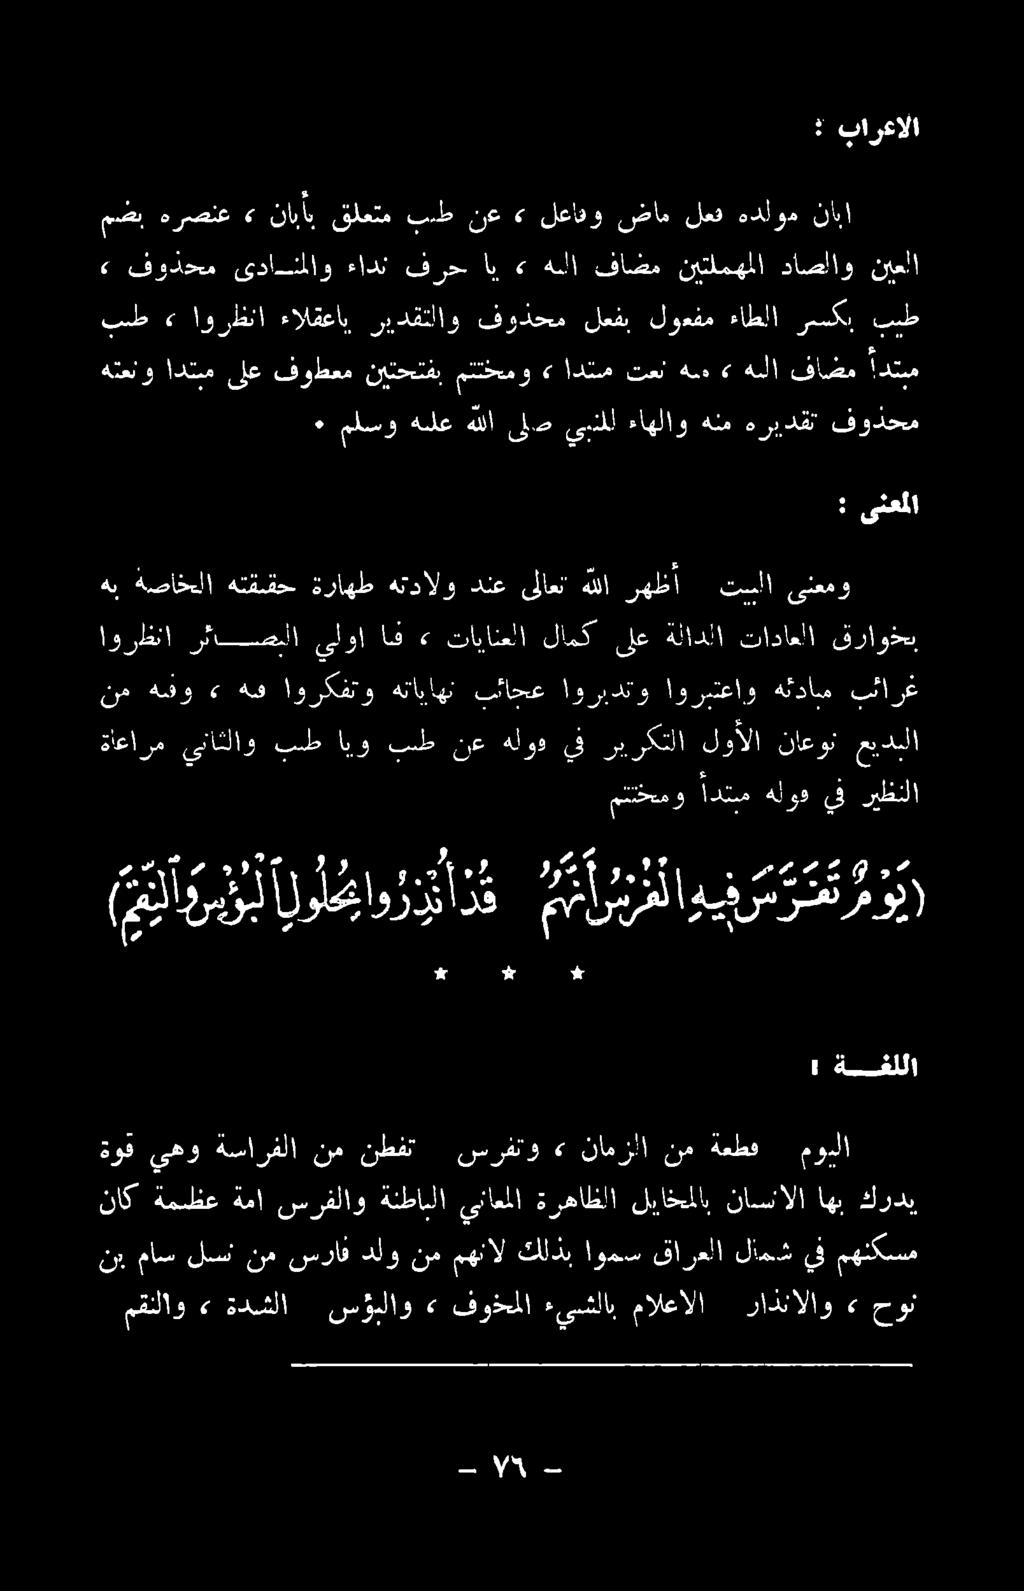 الاعراب :
ابان مولده فعل ماض وفاعل ، عن طيب متعلق بأبان ، عنصره بضم
العين والصاد المهملتين مضاف اليه ، يا حرف نداء والمنادى محذوف ،
طيب بكسر الطاء مفعول بفعل محذوف والتقدير ياعقلاء انظروا ، طيب
مبتدأ مضاف اليه ، منه نعت مبتدا ، ومختتم بفتحتين معطوف على مبتدا ونعته
محذوف تقديره منه والهاء للنبي صلى الله عليه وسلم .
المعنى :
ومعنى البيت أظهر الله تعالى عند ولادته طهارة حقيقته الخاصة به
بخوارق العادات الدالة على كمال العنايات ، فيا اولي البصــائر انظروا
غرائب مبادئه واعتبروا وتدبروا عجائب نهاياته وتفكروا فيه ، وفيه من
البديع نوعان الأول التكرير في قوله عن طيب ويا طيب والثاني مراعاة
النظير في قوله مبتدأ ومختتم
(يَوْمٌ تَفَرَّسَ فِيهِ الْفُرْسُ أَنَّهُمُ قَدْ أُنْذِرُوا بِحُلُولِ الْبُؤْسِ وَالنِّقَمِ)
* * *
اللغــة :
اليوم قطعة من الزمان ، وتفرس تفطن من الفراسة وهي قوة
يدرك بها الانسان بالمخايل الظاهرة المعاني الباطنة والفرس امة عظيمة كان
مسكنهم في شمال العراق سموا بذلك لانهم من ولد فارس من نسل سام بن
نوح ، والانذار الاعلام بالشيء المخوف ، والبؤس الشدة ، والنقم
– ٧٦ –